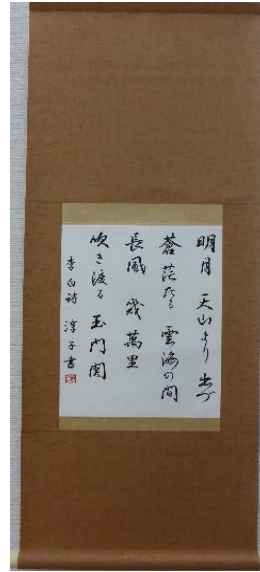 明月 天山より 出づ
蒼茫たる 雲海の間
長風 幾萬里
吹き渡る 玉門関
李白詩 淳子書